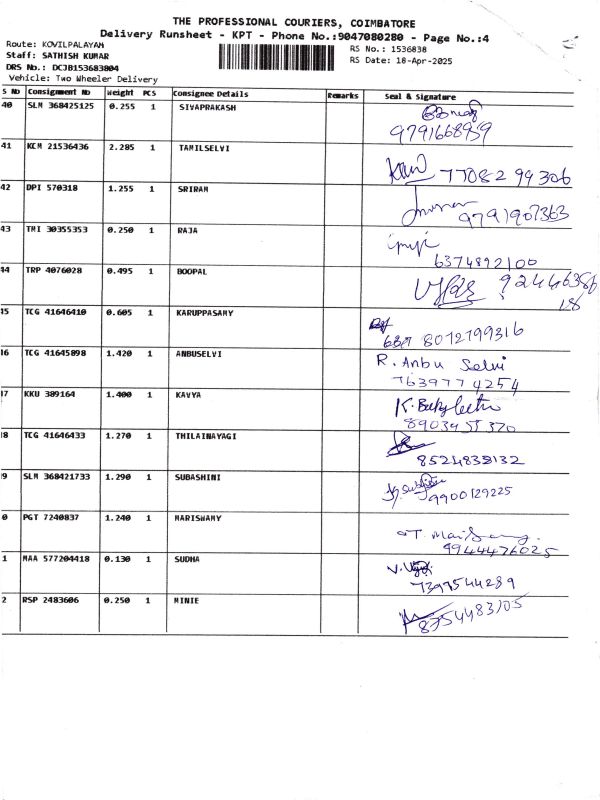 THE PROFESSIONAL COURIERS, COIMBATORE
Delivery Runsheet - KPT - Phone No.:9047080280 - Page No.:4
Route: KOVILPALAYAM
RS No.: 1536838
Staff: SATHISH KUMAR
RS Date: 18-Apr-2025
DRS No.: DCJB153683804
Vehicle: Two Wheeler Delivery
S No Consignment No Weight PCS Consignee Details Remarks Seal & Signature
40 SLM 368425125 0.255 1 SIVAPRAKASH
9791668959
41 KCM 21536436 2.285 1 TAMILSELVI
77082 99306
42 DPI 570318 1.255 1 SRIRAM
9791907363
43 TRI 30355353 0.250 1 RAJA
6374892100
44 TRP 4076028 0.495 1 BOOPAL
45 TCG 41646410 0.605 1 KARUPPASAMY
8072799316
46 TCG 41645898 1.420 1 ANBUSELVI R. Anbu Selvi
7639774254
47 KKU 389164 1.400 1 KAVYA
8903455370
48 TCG 41646433 1.270 1 THILAINAYAGI
8524838132
9 SLM 368421733 1.290 1 SUBASHINI
9900129225
0 PGT 7240837 1.240 1 MARISWAMY
9944476025
1 MAA 577204418 0.130 1 SUDHA
7397544289
2 RSP 2483606 0.250 1 MINIE
8754483705